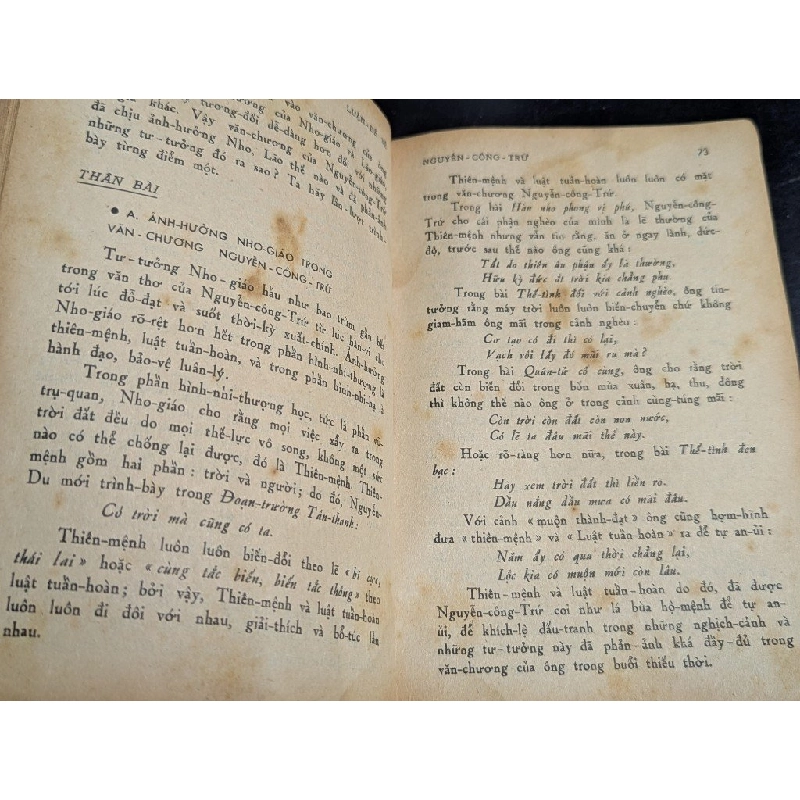 LUẬN-ĐỀ VỀ
vào văn-chương của
tương-đối dễ-dàng hơn đối với những
khác. Vậy văn-chương của Nguyễn-công-Trứ
đã chịu ảnh-hưởng Nho, Lão thế nào và có phản-ảnh
những tư-tưởng đó ra sao? Ta hãy lần-lượt trình-
bày từng điểm một.
THÂN BÀI
● A. ẢNH-HƯỞNG NHO-GIÁO TRONG
VĂN-CHƯƠNG NGUYỄN-CÔNG-TRỨ
Tư-tưởng Nho-giáo hầu như bao trùm gần hết
trong văn thơ của Nguyễn-công-Trứ từ lúc hàn-vi cho
tới lúc đỗ-đạt và suốt thời-kỳ xuất-chính. Ảnh-hưởng
Nho-giáo rõ-rệt hơn hết trong phần hình-nhi-thượng là
thiên-mệnh, luật tuần-hoàn, và trong phần hình-nhi-hạ là
hành đạo, bảo-vệ luân-lý.
Trong phần hình-nhi-thượng học, tức là phần vũ-
trụ-quan, Nho-giáo cho rằng mọi việc xẩy ra trong
trời đất đều do mọi thế-lực vô song, không một sức
nào có thể chống lại được, đó là Thiên-mệnh. Thiên-
mệnh gồm hai phần: trời và người; do đó, Nguyễn-
Du mới trình-bày trong Đoạn-trường Tân-thanh:
Có trời mà cũng có ta.
Thiên-mệnh luôn luôn biến-đổi theo lẽ «bĩ cực,
thái lai» hoặc «cùng tắc biến, biến tắc thông» theo
luật tuần-hoàn; bởi vậy, Thiên-mệnh và luật tuần-hoàn
luôn luôn đi đôi với nhau, giải-thích và bổ-túc lẫn
nhau.
NGUYỄN-CÔNG-TRỨ 73
Thiên-mệnh và luật tuần-hoàn luôn luôn có mặt
trong văn-chương Nguyễn-công-Trứ.
Trong bài Hàn nho phong vị phú, Nguyễn-công-
Trứ cho cái phận nghèo của mình là lẽ thường của
Thiên-mệnh nhưng vẫn tin rằng, ăn ở ngay lành, đức-
độ, trước sau thế nào ông cũng khá:
Tất do thiên ân phận ấy là thường,
Hữu kỳ đức ắt trời kia chẳng phụ.
Trong bài Thế-tình đối với cảnh nghèo, ông tin-
tưởng rằng máy trời luôn luôn biến-chuyển chứ không
giam-hãm ông mãi trong cảnh nghèo:
Cơ tạo có đi thì có lại,
Vạch vôi lấy đó mãi ru mà?
Trong bài Quân-tử cố cùng, ông cho rằng trời
đất còn biến đổi trong bốn mùa xuân, hạ, thu, đông
thì không thể nào ông ở trong cảnh cùng-túng mãi:
Còn trời còn đất còn non nước,
Có lẽ ta đâu mãi thế này.
Hoặc rõ-ràng hơn nữa, trong bài Thế-tình đen
bạc:
Hay xem trời đất thì liền rõ.
Dầu nắng dầu mưa có mãi đâu.
Với cảnh «muộn thành-đạt» ông cũng hợm-hĩnh
đưa «thiên-mệnh» và «Luật tuần hoàn» ra để tự an-ủi:
Năm ấy có qua thời chẳng lại,
Lộc kia có muộn mới còn lâu.
Thiên-mệnh và luật tuần-hoàn do đó, đã được
Nguyễn-công-Trứ coi như lá bùa hộ-mệnh để tự an-
ủi, để khích-lệ đấu-tranh trong những nghịch-cảnh và
những tư-tưởng này đã phản-ảnh khá đầy-đủ trong
văn-chương của ông trong buổi thiếu thời.